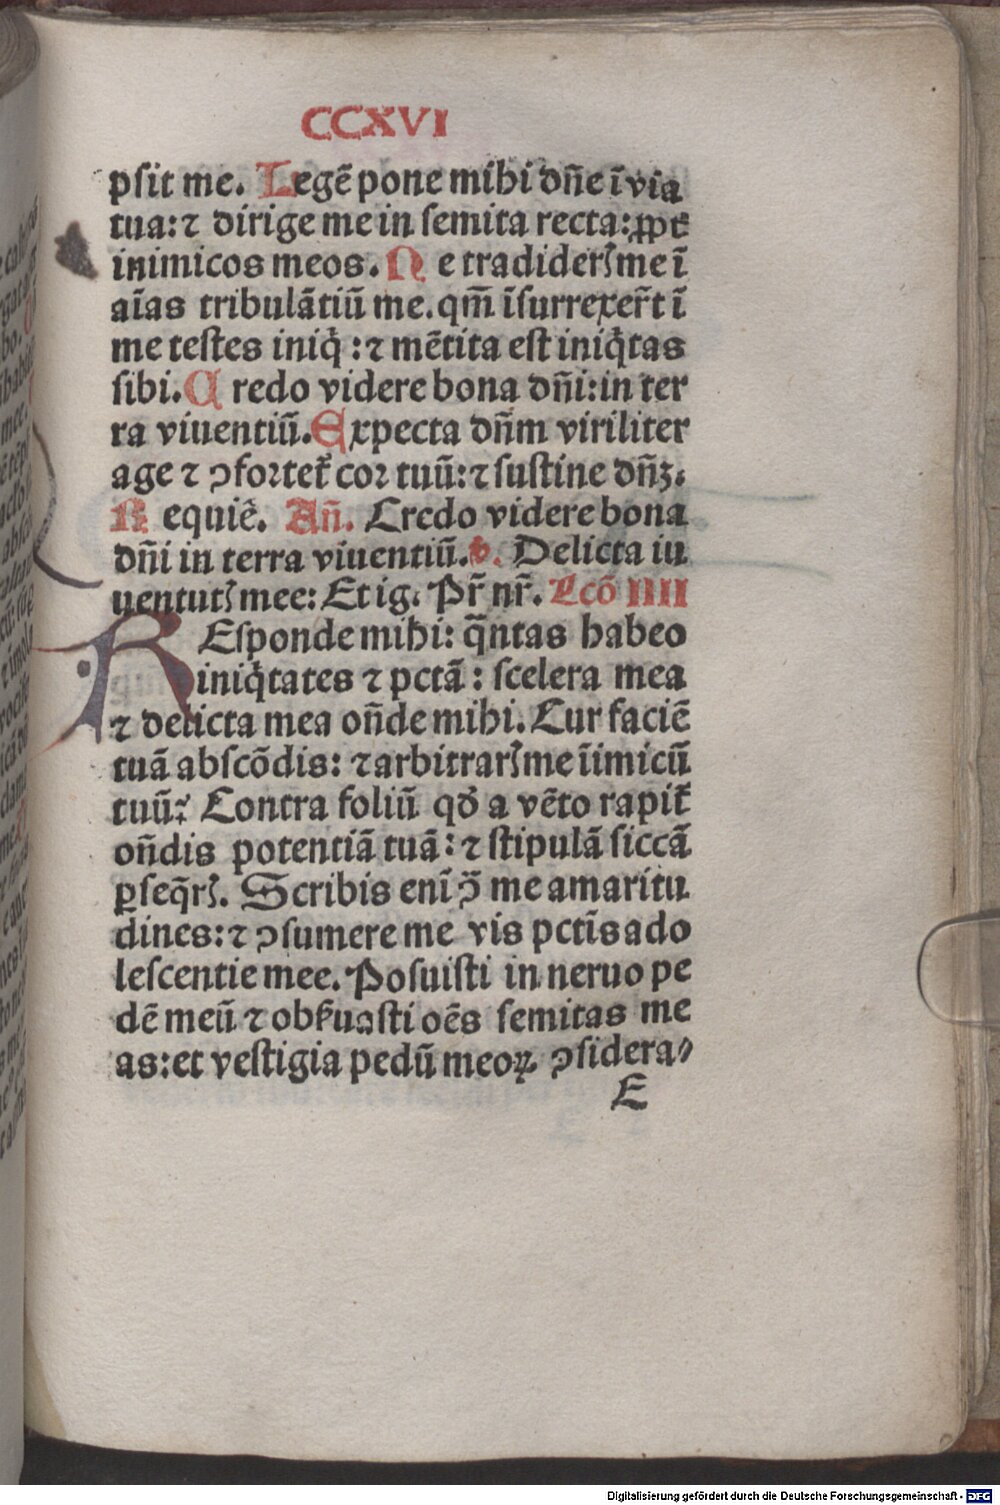 CCXVI
pſit me. Legē pone mihi dn̄e ī via
tua: ⁊ dirige me in ſemita recta: ꝓpt̄
inimicos meos. N e tradiderꝭ me ī
aīas tribulātiū me. qm̄ īſurrexer̄t ī
me teſtes iniq̇ : ⁊ mētita eſt iniq̇tas
ſibi. C redo videre bona dn̄i: in ter
ra viuentiū. Expecta dn̄m viriliter
age ⁊ ꝯfortet᷑ cor tuū: ⁊ ſuſtine dn̄ꝫ.
R equiē. An̄. Credo videre bona
dn̄i in terra viuentiū. v. Delicta iu
uentutꝭ mee: Et ig. Pr̄ nr̄. Lcō IIII
REſponde mihi: q̄ntas habeo
iniq̇tates ⁊ pctā : scelera mea
⁊ delicta mea on̄de mihi. Cur faciē
tuā abſcōdis: ⁊ arbitrarꝭ me īimicū
tuū: Contra foliū qd̓ a vēto rapit᷑
on̄dis potentiā tuā: ⁊ ſtipulā ſiccā
ꝑſeq̄rꝭ. Scribis enī ꝯ̄ me amaritu
dines: ⁊ ꝯſumere me vis pctīs ado
leſcentie mee. Poſuiſti in neruo pe
dē meū ⁊ obẜuaſti oēs ſemitas me
as: et veſtigia pedū meoꝝ ꝯſidera⸗
E
Digitalisierung gefördert durch die Deutsche Forschungsgemeinschaft - DFG